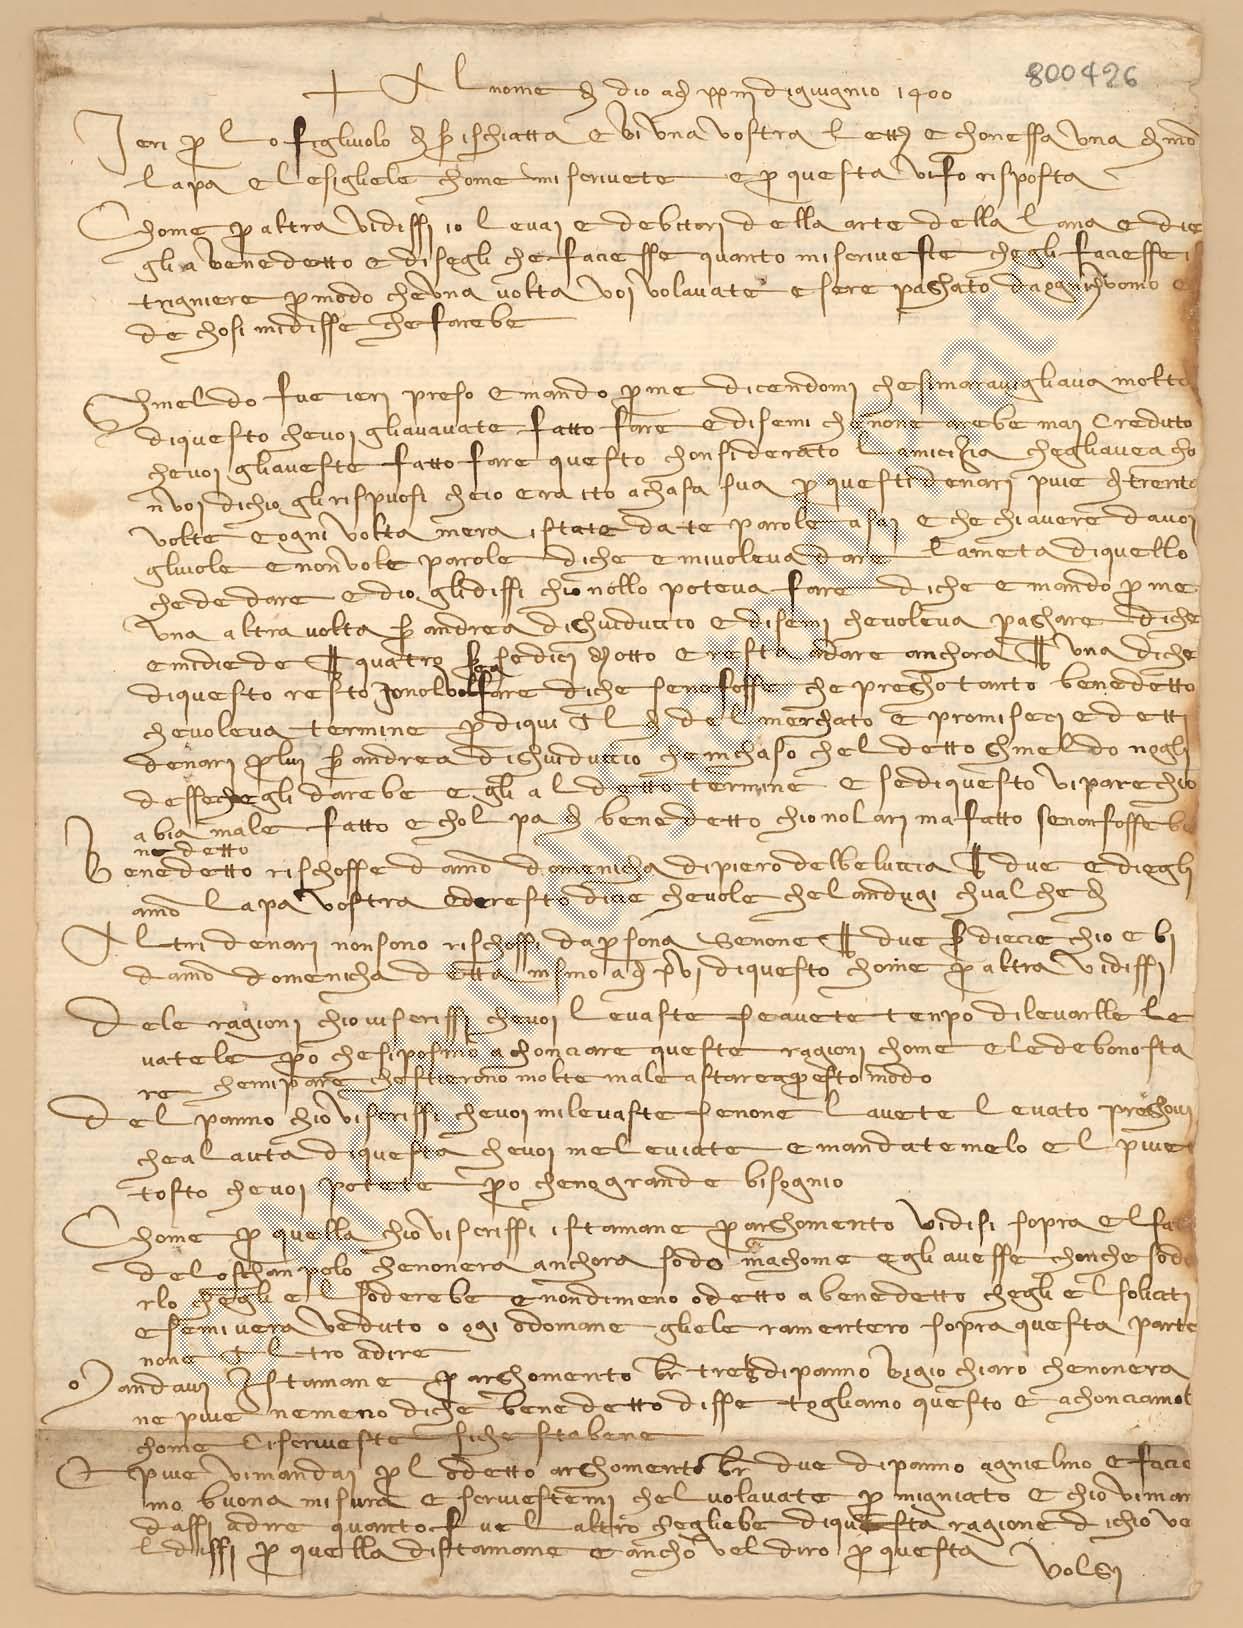 800426
Al nome di dio adì xxiii di giugnio 1400
Ieri per lo figliuolo di ser ischiatta ebi una vostra lettera e chonessa una di mona
lapa e lesigliele chome mi scrivete e per questa vi fo risposta
Chome per altra vi dissi io levai e debitori della arte della lana e die
gli a benedetto e disegli che faciesse quanto mi scriveste che gli faciesse
trigniere per modo che una volta voi volavate esere paghato da ogni uomo e
de chosi mi disse che farebe
Ghineldo fue ieri preso e mando per me dicendomi che si maravigliava molto
di questo che voi gli avavate fatto fare e disemi che none arebe mai creduto
che voi gli aveste fatto fare questo chonsiderato l amicizia che gli avea cho
n voi dich io gli rispuosi che io era ito a chasa sua per questi denari piue di trenta
volte e ogni volta m era istate date parole asai e che chi avere da voi
gl vuole e non vole parole di che e mi voleva dare la meta di quello
che de dare ed io gli dissi ch io nollo poteva fare di che e mando per me
una altra volta ser andrea di ghuiduccio e disemi che voleva paghare di che
e mi diede quatro sedici otto e resta a dare anchora una di che
di questo resto io nol vol fare di che se no fosse che pregho tanto benedetto
che voleva termine per di qui al di del merchato e promiseci e detti
denari per lui ser andrea di ghuiduccio che in chaso che l detto ghineldo no gli
desse che gli darebe egli al detto termine e se di questo vi pare ch io
abia male fatto e cholpa di benedetto ch io nol arima fatto se non fosse be
nedetto
Benedetto rischosse da mona domenicha di piero delbeluccia due e diegli
a mona lapa vostra ed e resto dicie che vole che l andugi qualche dì
Altri denari non sono rischossi da persona senone due dieci ch io ebi
da mona domenicha detta insino a dì di questo chome per altra vi dissi
Dele ragioni ch io vi scrissi che voi levaste se avete tenpo di levarlle le
vatele pero che si posino achonciare queste ragioni chome ele debono sta
re che mi pare che stieno molte male a stare a questo modo
Del panno ch io vi scrissi che voi mi levaste se none l avete levato preghovi
che al auta di questa che voi me l leviate e mandatemelo el piue
tosto che voi potete pero che n o grande bisognio
Chome per quella ch io vi scrissi istamane per arghomento vi disi sopra el fa
del che non era anchora sodo ma chome egli avesse chon che soda
rlo ch egli el soderebe e nondimeno o detto a benedetto ch egli el soliciti
e se mi vera veduto o ogi o domane gliele ramentero sopra questa parte
none altro a dire
Mandavi istamane per arghomento br tre di panno bigio chiaro che non era
ne piue ne meno di che benedetto disse togliamo questo e achonciamol
chome ci scriveste siche sta bene
E piue vi mandai per lo detto arghomento br due di panno agniellino e facie
mo buona misura e scrivestemi che l volavate per migniato e ch io vi man
dassi a dire quanto fue l altro ch egli ebe di questa ragione di ch io ve
l dissi per quella d istamane e ancho vel diro per questa
volsi